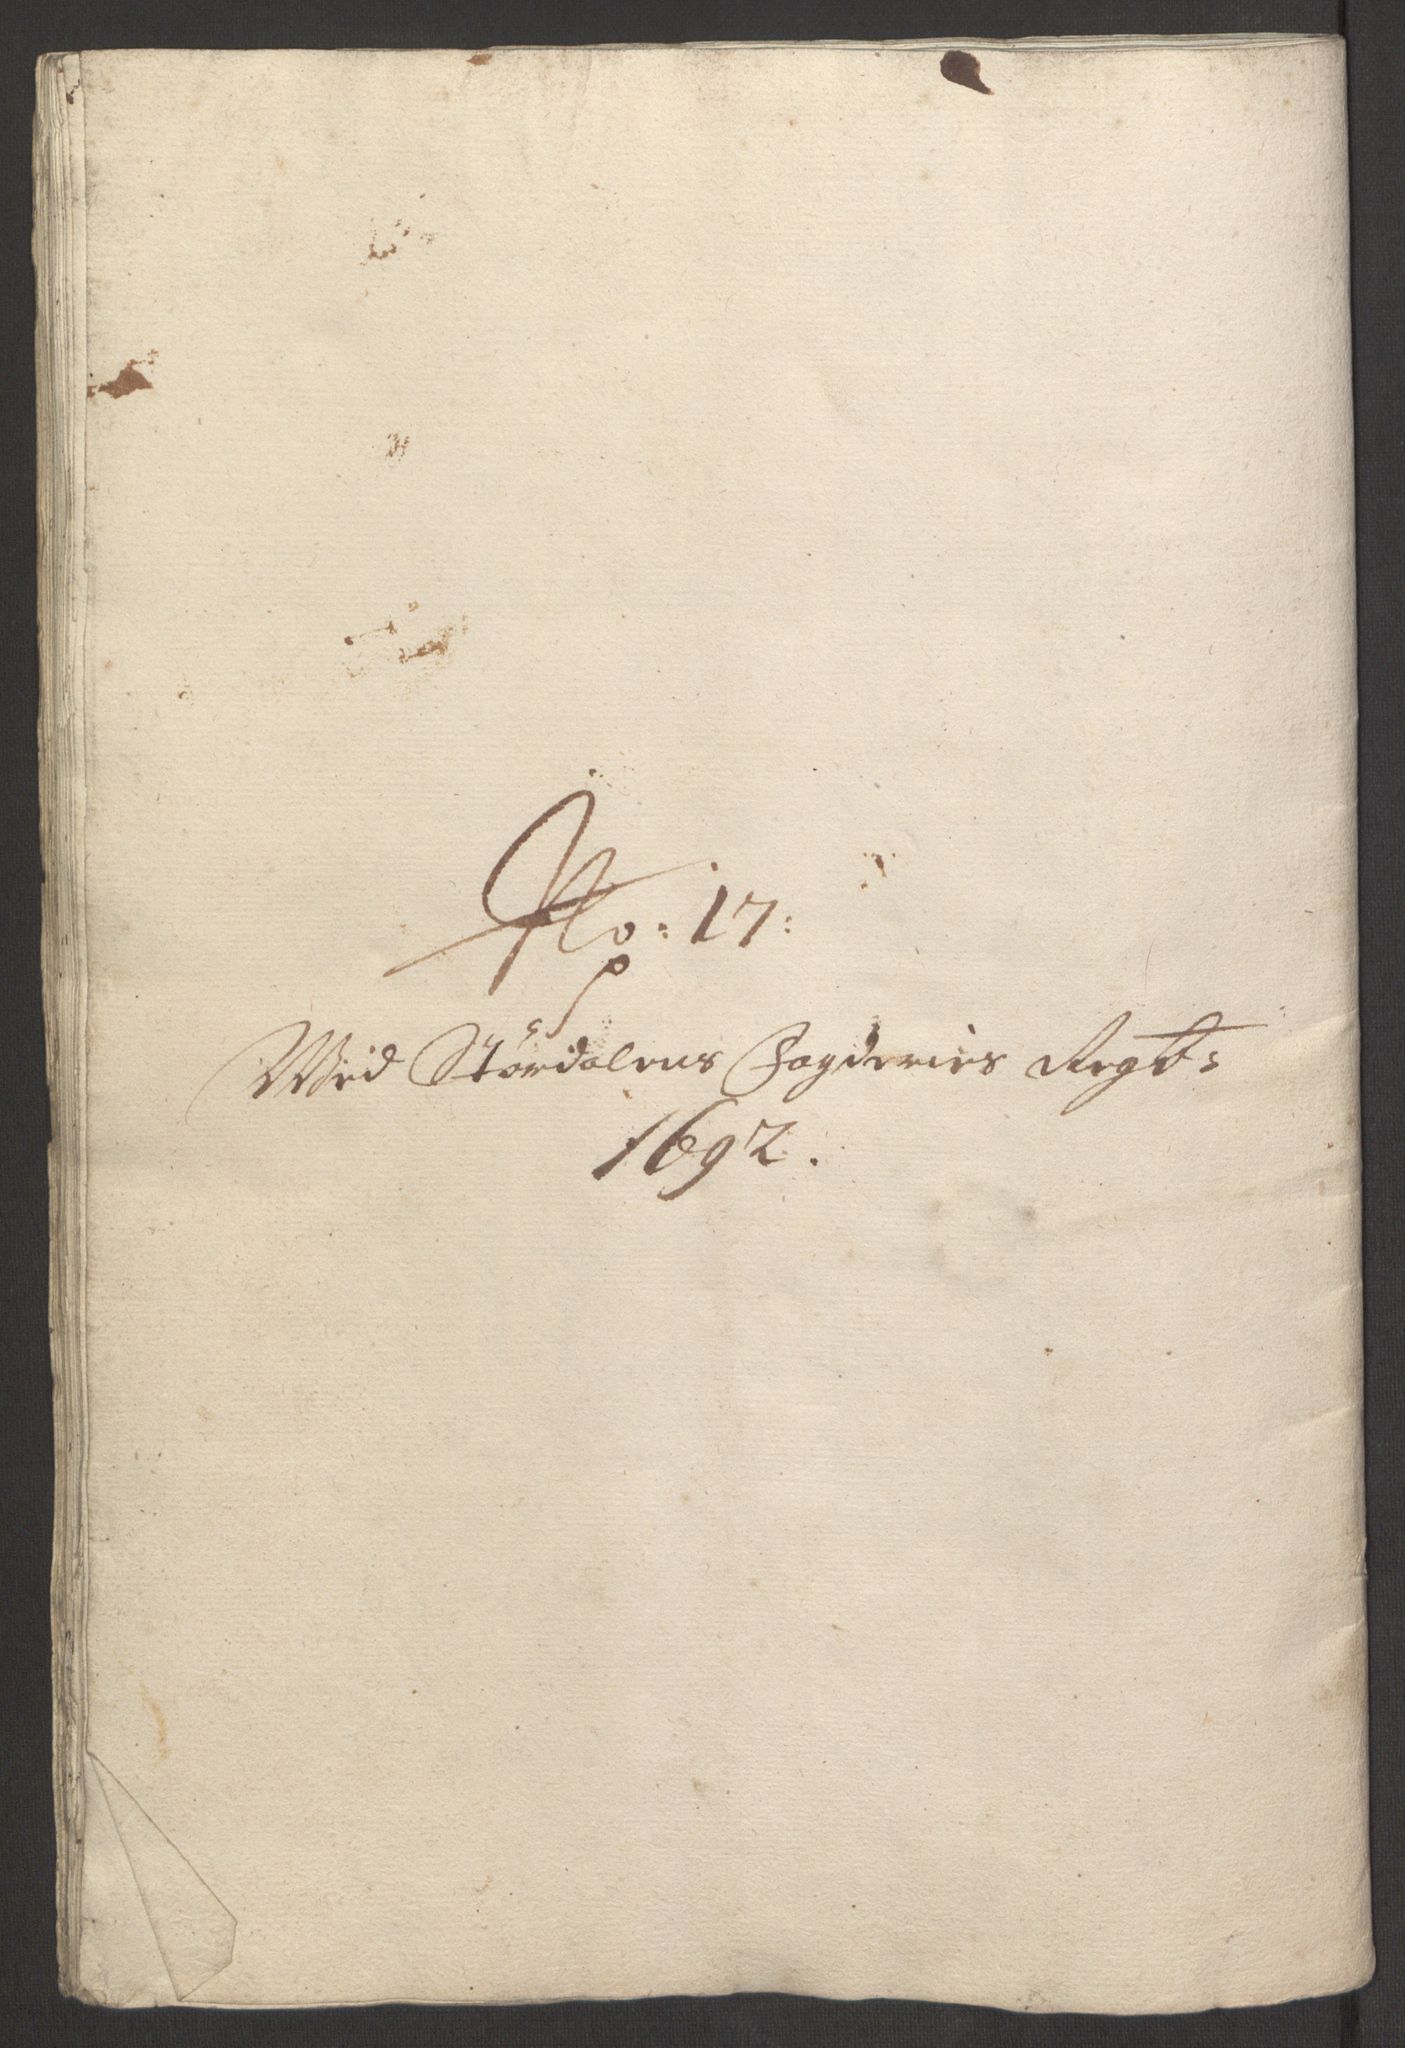 No: 17:
Wed Stördalens Fogderies Regt:
1692.